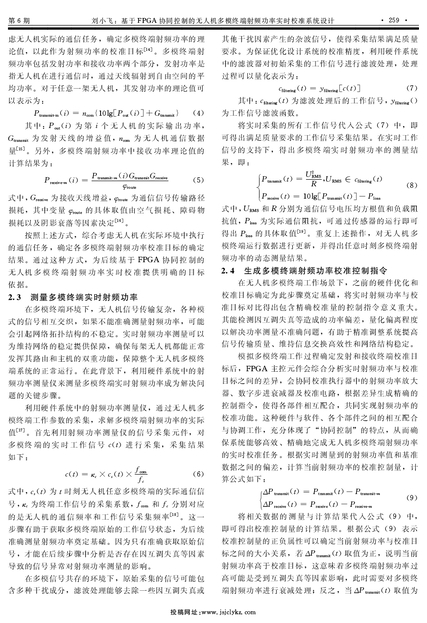 第 6 期
刘小飞：基于 FPGA 协同控制的无人机多模终端射频功率实时校准系统设计
· 259 ·
虑无人机实际的通信任务，确定多模终端射频功率的理
论值，以此作为射频功率的校准目标[14]。多模终端射
频功率包括发射功率和接收功率两个部分，发射功率是
指无人机在进行通信时，通过天线辐射到自由空间的平
均功率。对于任意一架无人机，其发射功率的理论值可
以表示为：
(4)
其中：P_out(i) 为第 i 个无人机的实际输出功率，
G_transmit 为发射天线的增益值，n_com 为无人机通信数据
量[15]。另外，多模终端射频功率中接收功率理论值的
计算结果为：
(5)
式中，G_receive 为接收天线增益，φ_loss 为通信信号传输路径
损耗，其中变量 φ_loss 的具体取值由空气损耗、障碍物
损耗以及阴影衰落等因素决定[16]。
按照上述方式，综合考虑无人机在实际环境中执行
的通信任务，确定各多模终端射频功率校准目标的确定
结果。通过这种方式，为后续基于 FPGA 协同控制的
无人机多模终端射频功率实时校准提供明确的目标
依据。
2. 3　测量多模终端实时射频功率
在多模终端环境下，无人机信号传输复杂，各种模
式的信号相互交织，如果不能准确测量射频功率，可能
会引起网络拓扑结构的不稳定。实时射频功率测量可以
为维持网络的稳定提供保障，确保每架无人机都能正常
发挥其路由和主机的双重功能，保障整个无人机多模终
端系统的正常运行。在此背景下，利用硬件系统中的射
频功率测量仪来测量多模终端实时射频功率成为解决问
题的关键步骤。
利用硬件系统中的射频功率测量仪，通过无人机多
模终端工作参数的采集，求解多模终端射频功率的实际
值[17]。首先利用射频功率测量仪的信号采集元件，对
多模终端的实时工作信号 c(t) 进行采集，采集结果
如下：
(6)
式中，c_s(t) 为 t 时刻无人机任意多模终端的实际通信信
号，κ_c 为终端工作信号的采集系数，f_com 和 f_c 分别对应
的是无人机的通信频率和工作信号采集频率[18]。这一
步骤有助于获取多模终端原始的工作信号状态，为后续
准确测量射频功率奠定基础。因为只有准确获取原始信
号，才能在后续步骤中分析是否存在因互调失真等因素
导致的信号异常对射频功率测量的影响。
在多模信号共存的环境下，原始采集的信号可能包
含多种干扰成分，滤波处理能够去除一些因互调失真或
其他干扰因素产生的杂波信号，使得采集结果满足质量
要求。为保证优化设计系统的校准精度，利用硬件系统
中的滤波器对初始采集的工作信号进行滤波处理，处理
过程可以量化表示为：
c_filtering(t) = y_filtering[c(t)] (7)
其中：c_filtering(t) 为滤波处理后的工作信号，y_filtering()
为工作信号滤波函数。
将实时采集的所有工作信号代入公式（7）中，即
可得出满足质量要求的工作信号采集结果。在实时工作
信号的支持下，得出多模终端实时射频功率的测量结
果，即：
(8)
式中，U_RMS 和 R 分别为通信信号电压均方根值和负载阻
抗值，P_loss 为实际通信阻抗，可通过传感器的运行即可
得出 P_loss 的具体取值[19]。重复上述操作，对无人机多
模终端运行数据进行更新，并得出任意时刻多模终端射
频功率的动态测量结果。
2. 4　生成多模终端射频功率校准控制指令
在无人机多模终端工作场景下，之前的硬件优化和
校准目标确定为此步骤奠定基础，将实时射频功率与校
准目标对比得出包含精确校准量的控制指令意义重大。
其能校测因互调失真等造成的功率偏差，量化偏离程度
以解决功率测量不准确问题，有助于精准调整系统提高
信号传输质量、维持信息交换高效性和网络结构稳定。
模拟多模终端工作过程确定发射和接收终端校准目
标后，FPGA 主控元件会综合分析实时射频功率与校准
目标之间的差异，会协同校准执行器中的射频功率放大
器、数字步进衰减器及校准电路，根据差异生成精确的
控制指令，使得各部件相互配合，共同实现射频功率的
校准功能。这种硬件与软件、各个部件之间的相互配合
与协调工作，充分体现了“协同控制”的特点，从而确
保系统能够高效、精确地完成无人机多模终端射频功率
的实时校准任务。根据实时测量到的射频功率值和基准
数据之间的偏差，计算当前射频功率的校准控制量，计
算公式如下：
(9)
将相关数据的测量与计算结果代入公式（9）中，
即可得出校准控制量的计算结果。根据公式（9）表示
校准控制量的正负属性可以确定当前射频功率与校准目
标之间的大小关系，若 ΔP_transmit(t) 取值为正，说明当前
射频功率高于校准目标，这意味着多模终端射频功率过
高可能是受到互调失真等因素影响，此时需要对多模终
端射频功率进行衰减处理；反之，当 ΔP_transmit(t) 取值为
投稿网址：www.jsjclykz.com